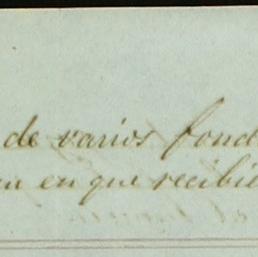 de varios fond
en que recibie